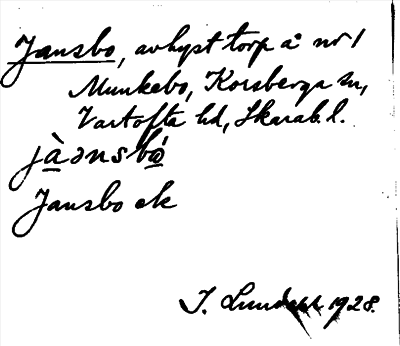 Jansbo, avhyst torp å nr 1
Munkebo, Korsberga sn,
Vartofta hd, Skarab. l.
jàənsbó
Jansbo ek
I. Lundahl 1928.